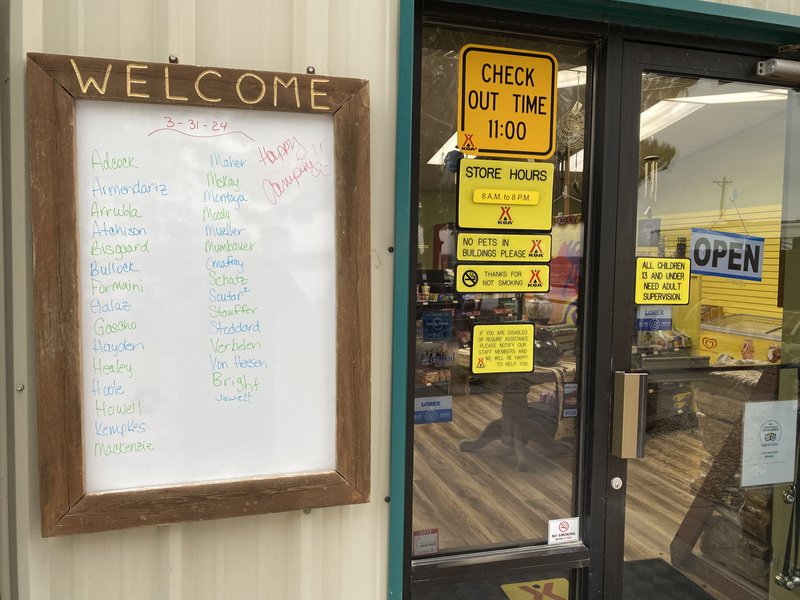 WELCOME
3-31-24
Happy
Camping!!
Adcock
Armendariz
Arrubla
Atchison
Bisgaard
Bullock
Formaini
Galaz
Goscho
Hayden
Healey
Hook
Howell
Kempkes
Mackenzie
Maher
McKay
Montoya
Moody
Mueller
Mumbauer
Omafray
Schatz
Soutar²
Stauffer
Stoddard
Verbelen
Von Hessen
Bright
Jewett
CHECK
OUT TIME
11:00
KOA
STORE HOURS
8 A.M. to 8 P.M.
KOA
NO PETS IN
BUILDINGS PLEASE
KOA
THANKS FOR
NOT SMOKING
KOA
IF YOU ARE DISABLED
OR REQUIRE ASSISTANCE
PLEASE NOTIFY OUR
STAFF MEMBERS AND
WE WILL BE HAPPY
TO HELP YOU
LOREX
VISA
NO SMOKING
OPEN
ALL CHILDREN
13 AND UNDER
NEED ADULT
SUPERVISION.
LOREX